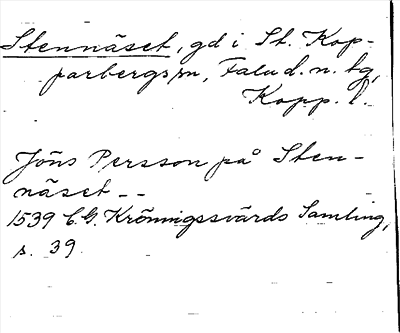 Stennäset, gd i St. Kop-
parbergs sn, Falu d. n. tg,
Kopp. l.
Jöns Persson på Sten-
näset - -
1539 C.G. Kröningssvärds Samling,
s. 39